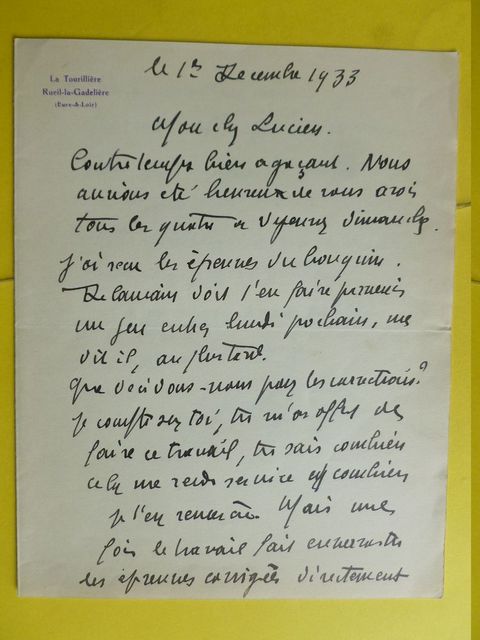 La Tourillière
Rueil-la-Gadelière
(Eure-&-Loir)
le 1er Decembre 1933
Mon cher Lucien.
Contretemps bien agaçant. Nous
aurions été heureux de vous avoir
tous les quatre à déjeuner dimanche.
J'ai reçu les épreuves du bouquin.
Delamain doit t'en faire parvenir
un jeu entier lundi prochain, me
dit il, au plus tard.
Que décidons-nous pour les corrections?
Je compte sur toi, tu m'as offert de
faire ce travail, tu sais combien
cela me rend service et combien
je t'en remercie. Mais une
fois le travail fait enverras tu
les épreuves corrigées directement